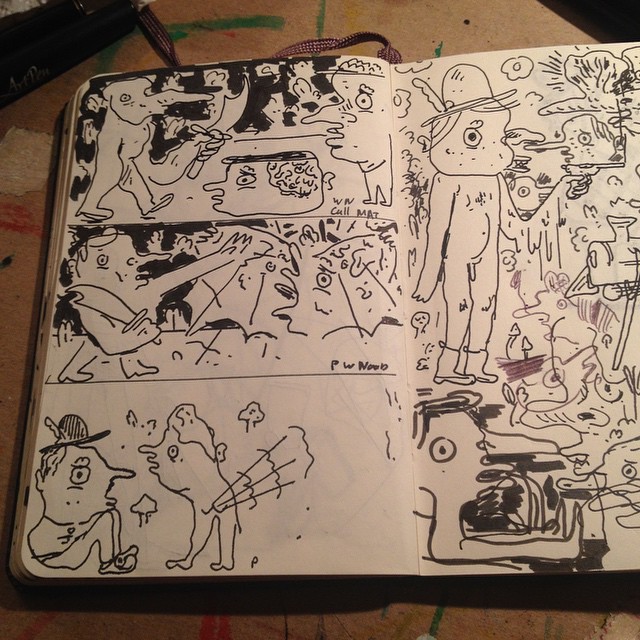 Art Pen
W N
Call MAT
P W Noob
P